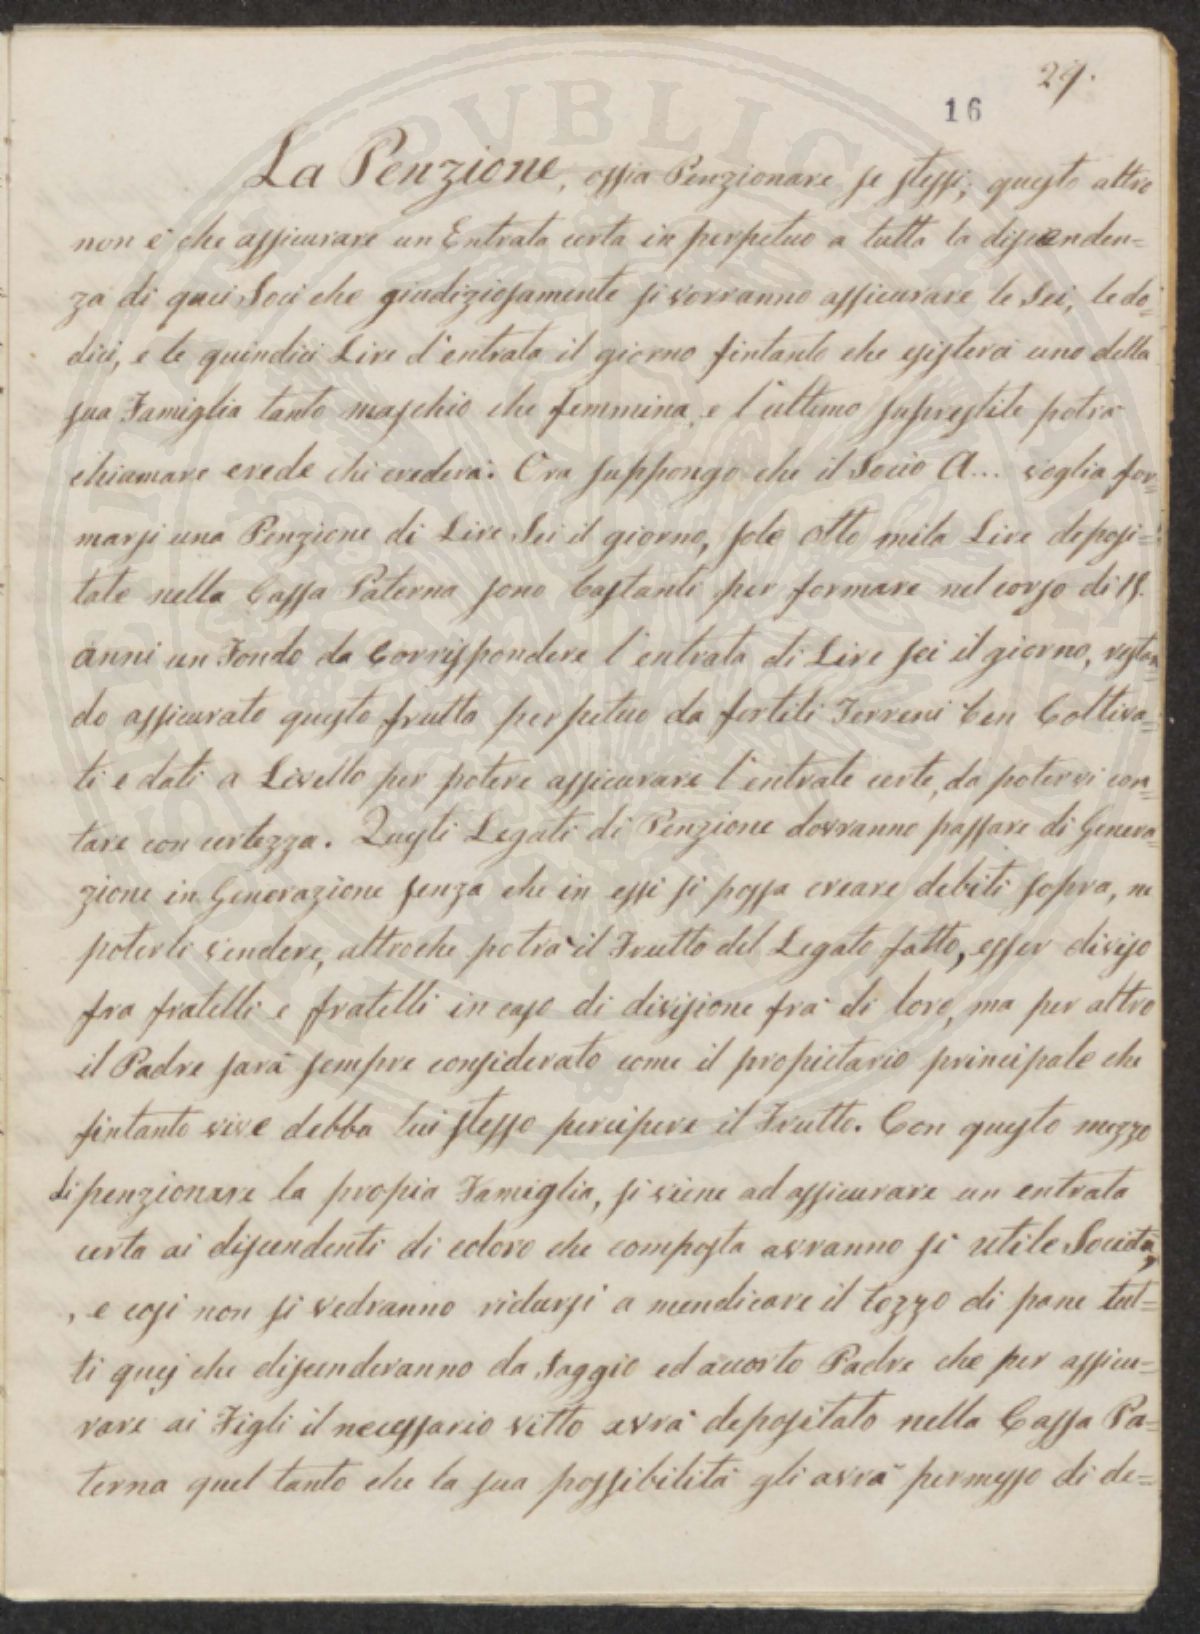 29.
16
La Penzione, ossia Penzionare se stessi; questo altro
non è che assicurare un Entrata certa in perpetuo a tutta la discenden=
za di quei Soci che giudiziosamente si vorranno assicurare le Sei, le do=
dici, e le quindici Lire d'entrata il giorno fintanto che esisterà uno della
sua Famiglia tanto maschio che femmina, e l'ultimo suprestite potrà
chiamare erede chi crederà. Ora suppongo che il Socio A... voglia for=
marsi una Penzione di Lire Sei il giorno, sole otto mila Lire deposi=
tate nella Cassa Paterna sono bastanti per formare nel corso di 15.
anni un Fondo da Corrispondere l'entrata di Lire sei il giorno, restan=
do assicurato questo frutto perpetuo da fertili Terreni ben Coltiva=
ti e dati a Livello per potere assicurare l'entrate certe, da potervi con=
tare con certezza. Questi Legati di Penzione dovranno passare di Genera=
zione in Generazione senza che in essi si possa creare debiti sopra, ne
poterli vendere, altroche potrà il Frutto del Legato fatto, esser diviso
fra fratelli e fratelli in caso di divisione frà di loro, ma per altro
il Padre sarà sempre considerato come il propietario principale che
fintanto vive debba lui stesso percipere il Frutto. Con questo mezzo
di penzionare la propia Famiglia, si viene ad assicurare un entrata
certa ai discendenti di coloro che composta avranno si utile Società,
, e cosi non si vedranno ridursi a mendicare il tozzo di pane tut=
ti quei che discenderanno da Saggio ed accorto Padre che per assicu=
rare ai Figli il necessario vitto avrà depositato nella Cassa Pa=
terna quel tanto che la sua possibilità gli avrà permesso di de=